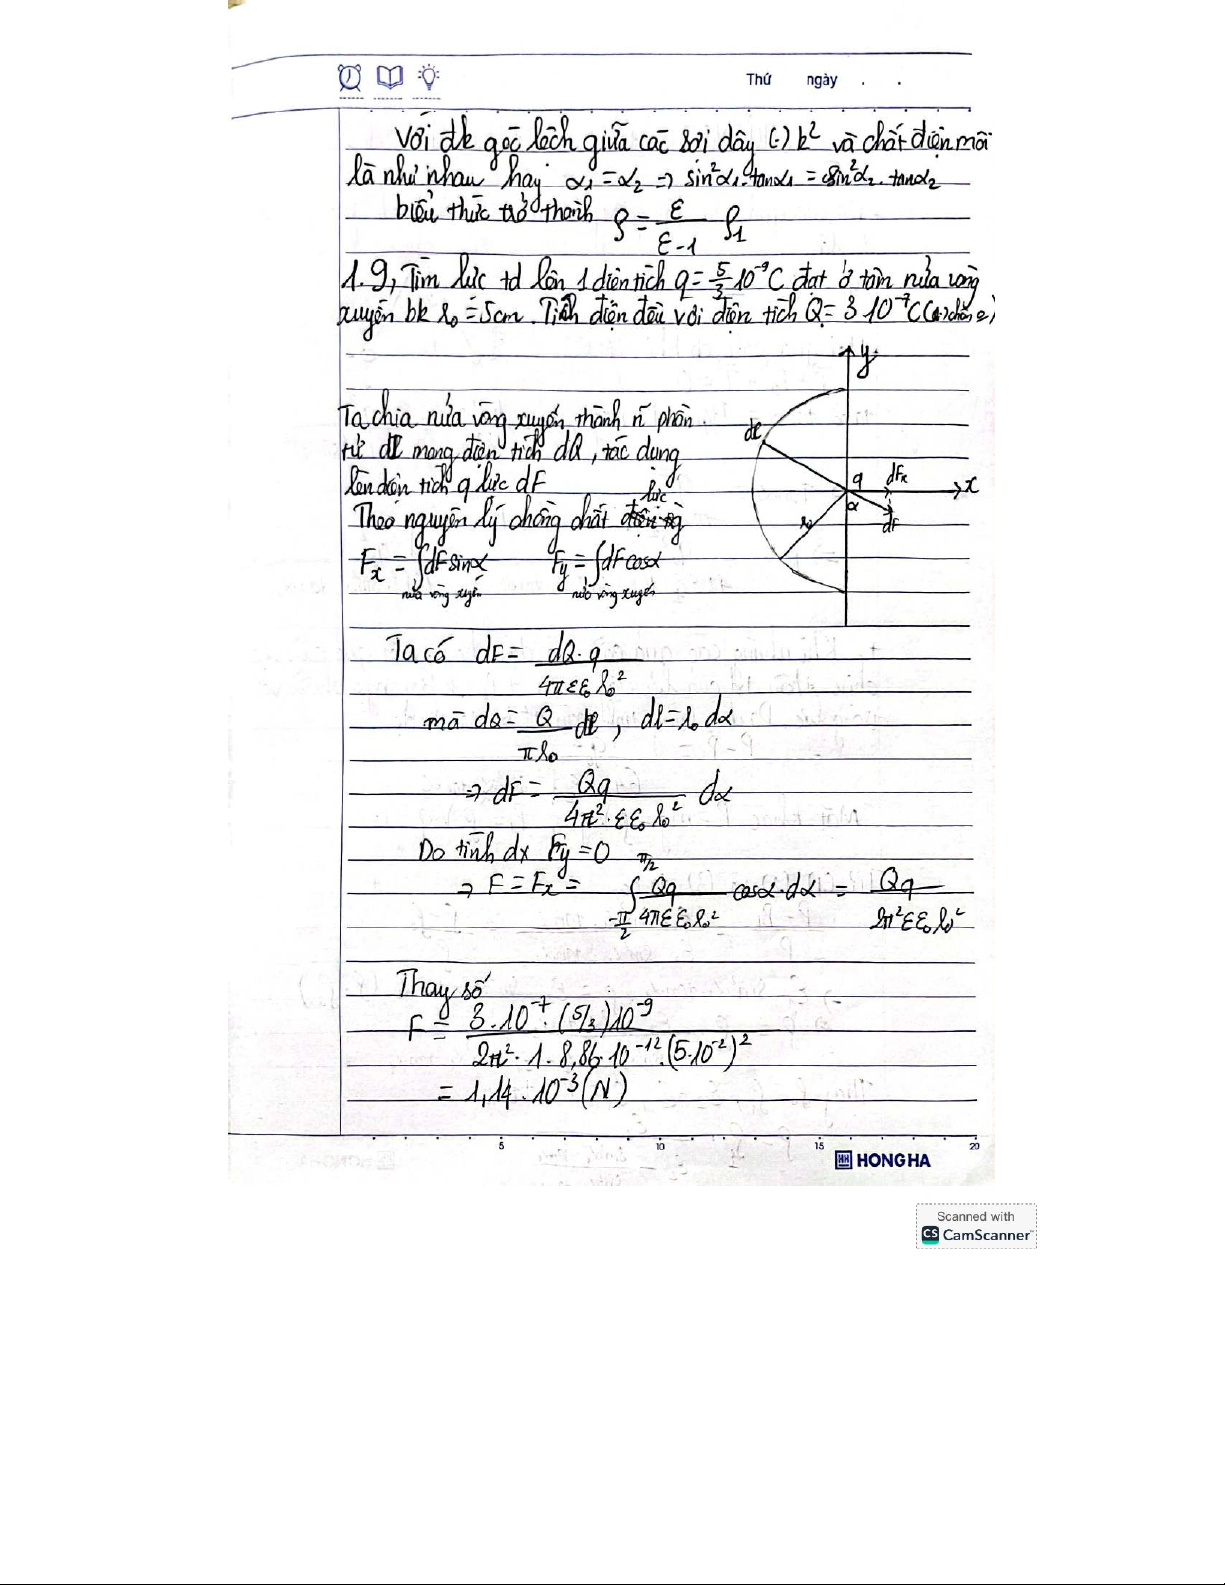 Thứ ngày . .
Với đk góc lệch giữa các sợi dây (-) k² và chất điện môi
là như nhau hay α₁ = α₂ => sin²α₁.tanα₁ = sin²α₂.tanα₂
biểu thức trở thành ρ = ε/(ε-1) ρ₁
1.9, Tìm lực td lên 1 điện tích q = 5/3 10⁻⁹C đạt ở tâm nửa vòng
xuyến bk r₀ = 5cm. Tích điện đều với điện tích Q = 3 10⁻⁷C
y
Ta chia nửa vòng xuyến thành n phần
tử dl mang điện tích dQ, tác dụng
lên điện tích q lực dF
dl q dFₓ x
α
r₀ dF
lực
Theo nguyên lý chồng chất
Fₓ = ∫dFsinα Fy = ∫dFcosα
nửa vòng xuyến nửa vòng xuyến
Ta có dF = dQ.q/(4πεε₀r₀²)
mà dQ = Q/(πr₀) dl, dl = r₀dα
=> dF = Qq/(4π².εε₀r₀²) dα
Do tính dx Fy = 0
=> F = Fₓ = ∫_{-π/2}^{π/2} Qq/(4πεε₀r₀²) cosα.dα = Qq/(2π²εε₀r₀²)
Thay số
F = 3.10⁻⁷.(5/3)10⁻⁹/(2π².1.8,86.10⁻¹².(5.10⁻²)²)
= 1,14.10⁻³(N)
5 10 15 20
HH HONG HA
Scanned with
CS CamScanner